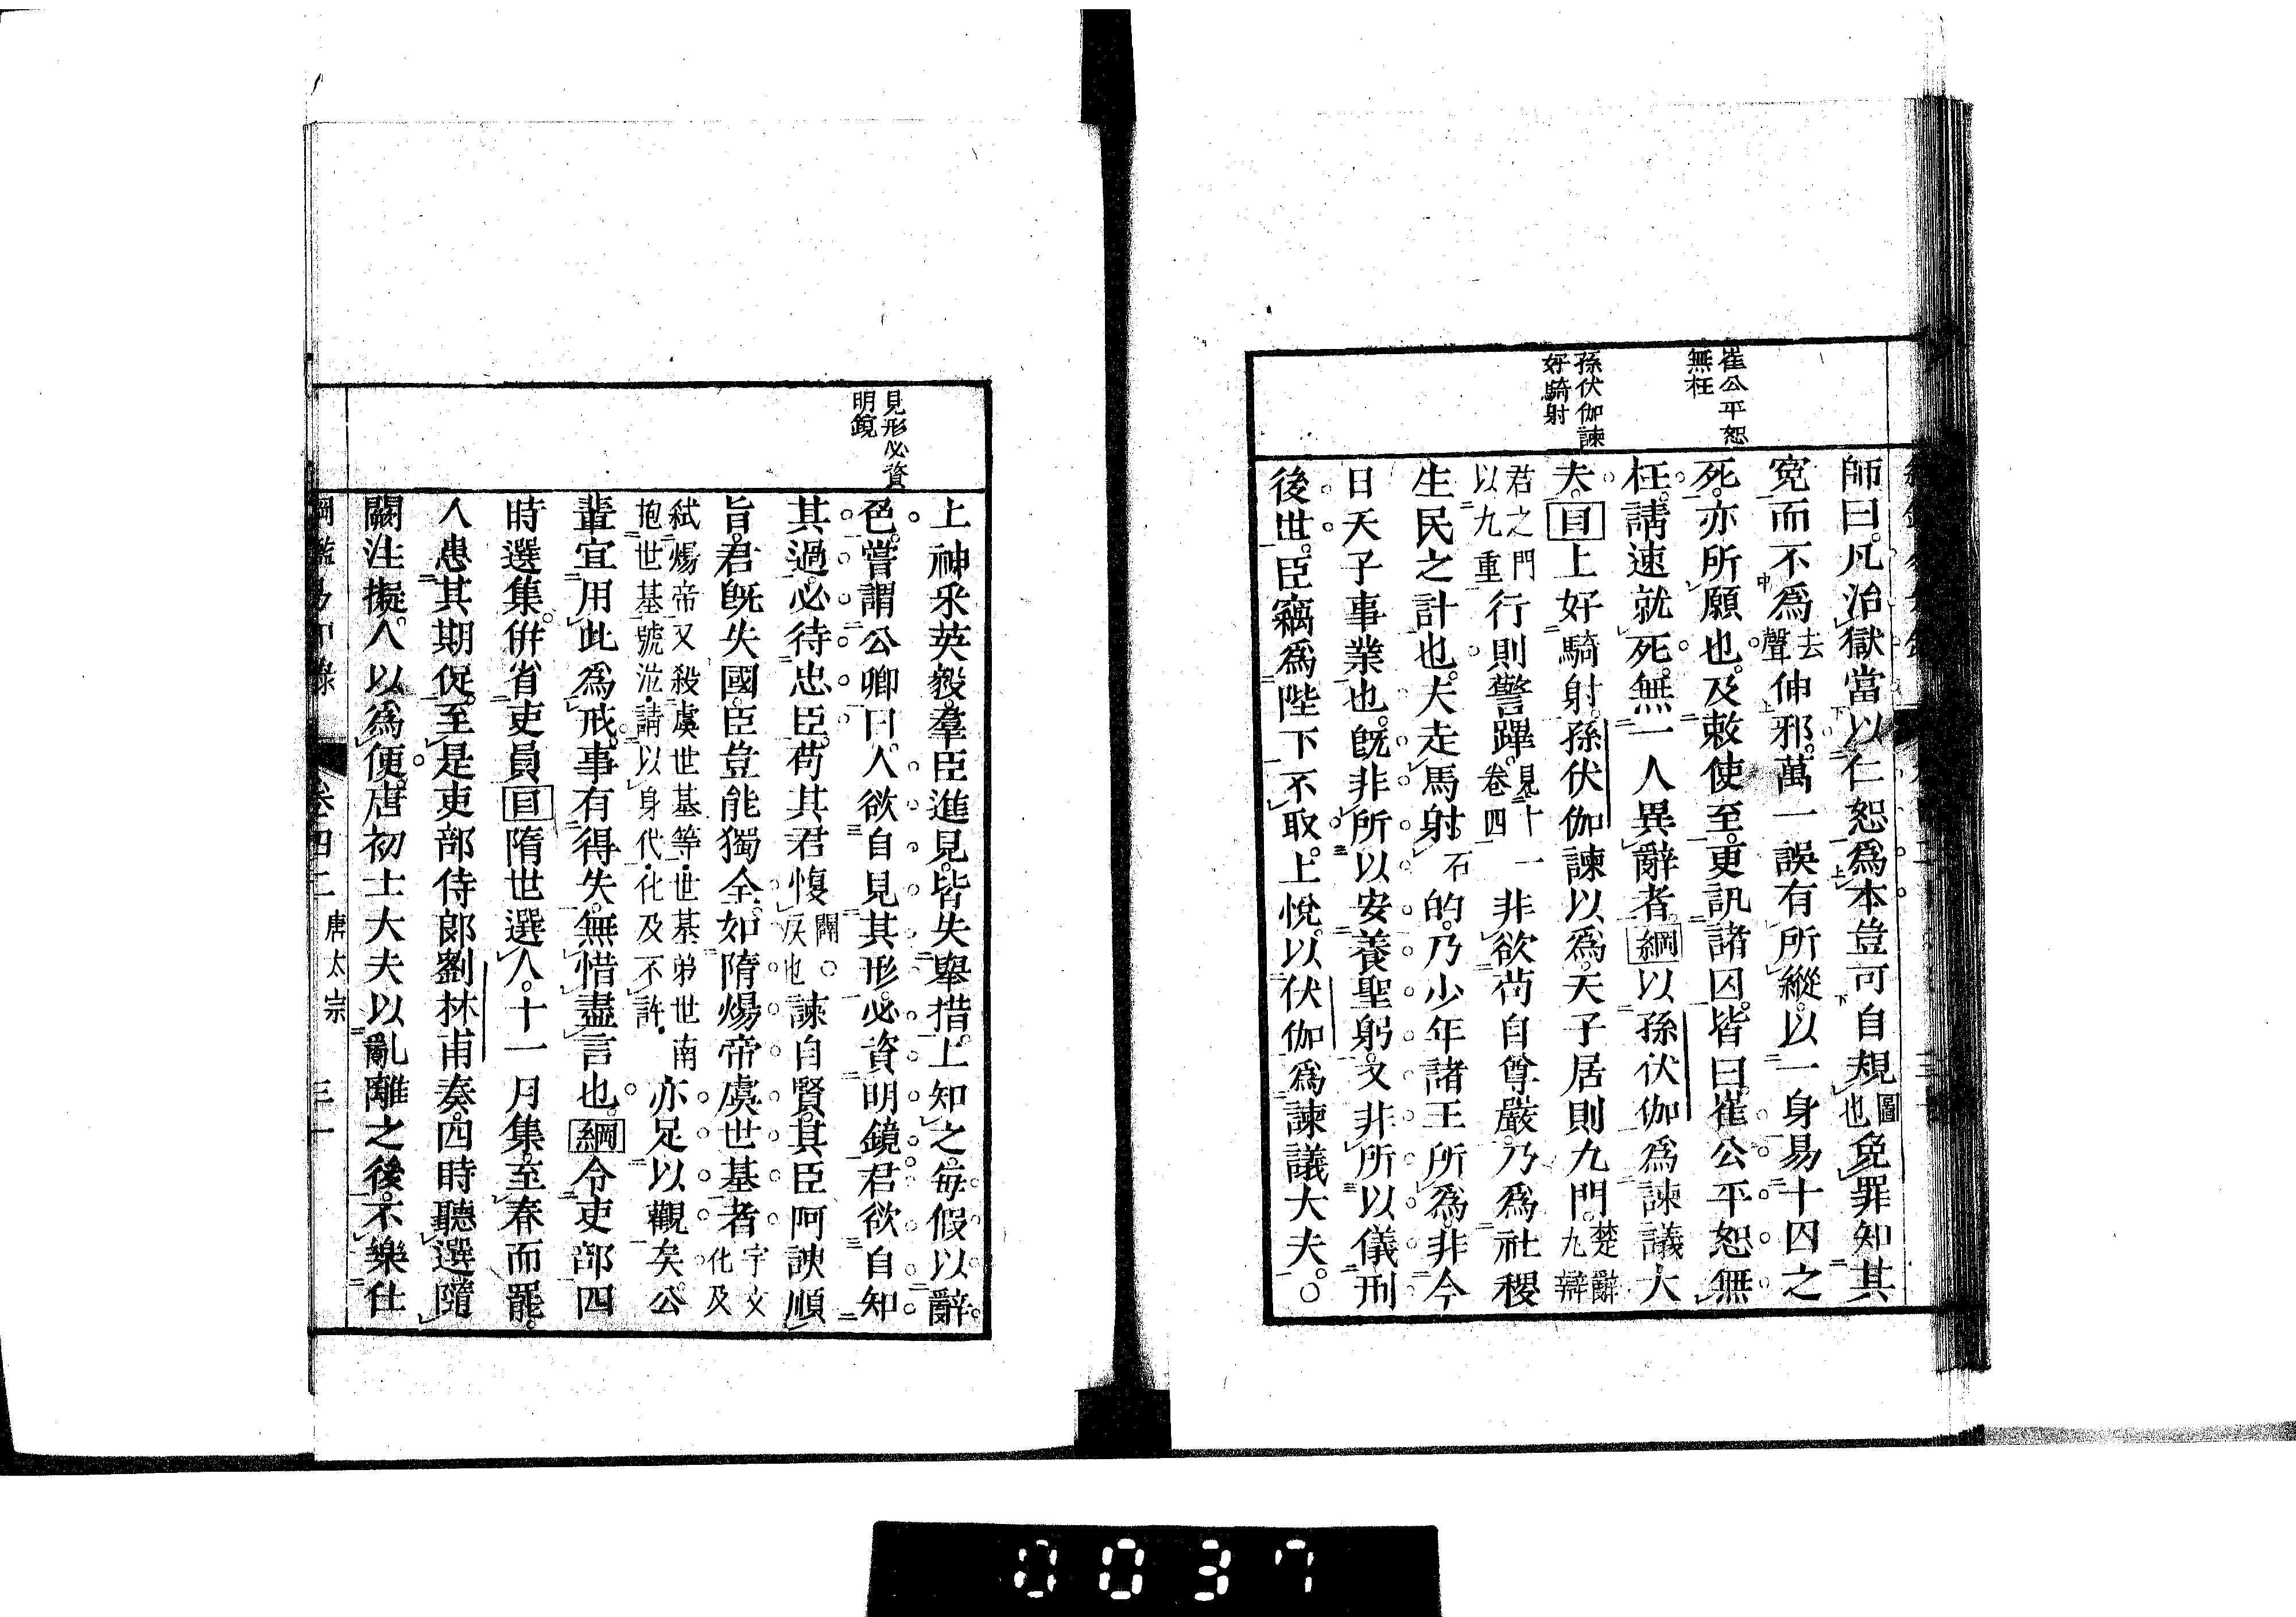 崔公平恕
無枉
孫伏伽諫
好騎射
師曰。凡治獄當以仁恕爲本豈可自規圖也免罪知其
寃而不爲去聲伸邪。萬一誤有所縱。以一身易十囚之
死。亦所願也。及敕使至。更訊諸囚。皆曰。崔公平恕無
枉。請速就死。無一人異辭者。綱以孫伏伽爲諫議大
夫。目上好騎射。孫伏伽諫以爲。天子居則九門。楚辭九辯
君之門以九重行則警蹕。見十一卷四非欲苟自尊嚴。乃爲社稷
生民之計也。夫走馬射石的。乃少年諸王所爲。非今
日天子事業也。旣非所以安養聖躬。又非所以儀刑
後世。臣竊爲陛下不取。上悅。以伏伽爲諫議大夫。○
見形必資
明鏡
上神采英毅。羣臣進見。皆失舉措。上知之。每假以辭
色。嘗謂公卿曰。人欲自見其形。必資明鏡。君欲自知
其過。必待忠臣。苟其君愎闕反也○諫自賢。其臣阿諛順
旨。君旣失國。臣豈能獨全。如隋煬帝虞世基者宇文化及
弑煬帝又殺虞世基等世基弟世南抱世基號泣請以身代化及不許亦足以觀矣。公
輩宜用此爲戒。事有得失。無惜盡言也。綱令吏部四
時選集。倂省吏員目隋世選人。十一月集。至春而罷。
人患其期促。至是吏部侍郞劉林甫奏。四時聽選隨
闕注擬。人以爲便。唐初士大夫以亂離之後。不樂仕
綱鑑易知錄 卷四二 唐太宗 三一